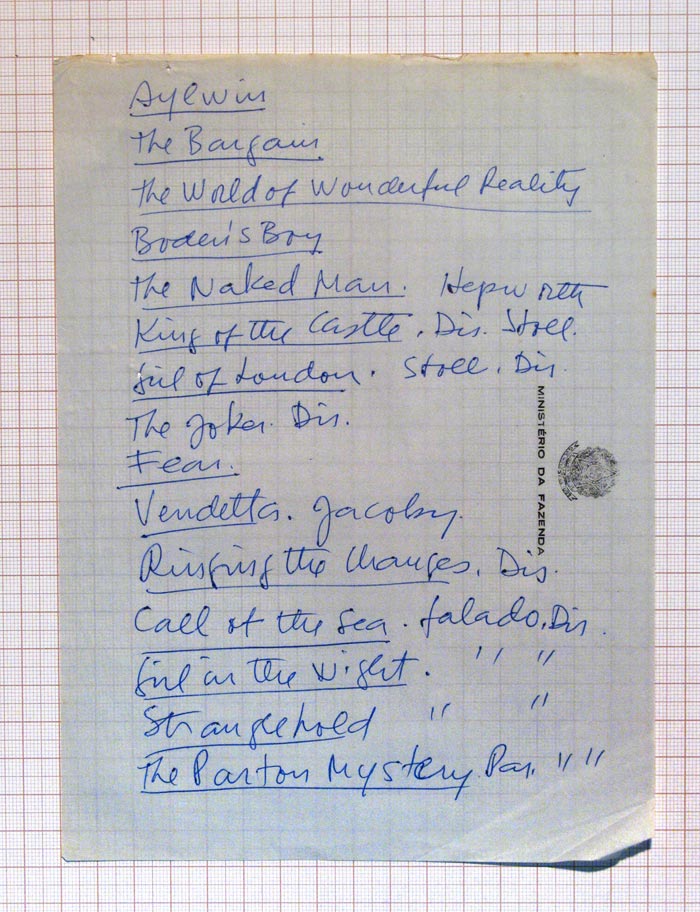 Aylwin
The Bargain
The World of Wonderful Reality
Boden's Boy
The Naked Man. Hepworth
King of the Castle. Dis. Stoll.
Girl of London. Stoll. Dis.
The Joker. Dis.
Fear.
MINISTÉRIO DA FAZENDA
Vendetta. Jacoby.
Ringing the Changes. Dis.
Call of the Sea. falado. Dis.
Girl in the Night. " "
Stranglehold " "
The Parton Mystery. Par. " "